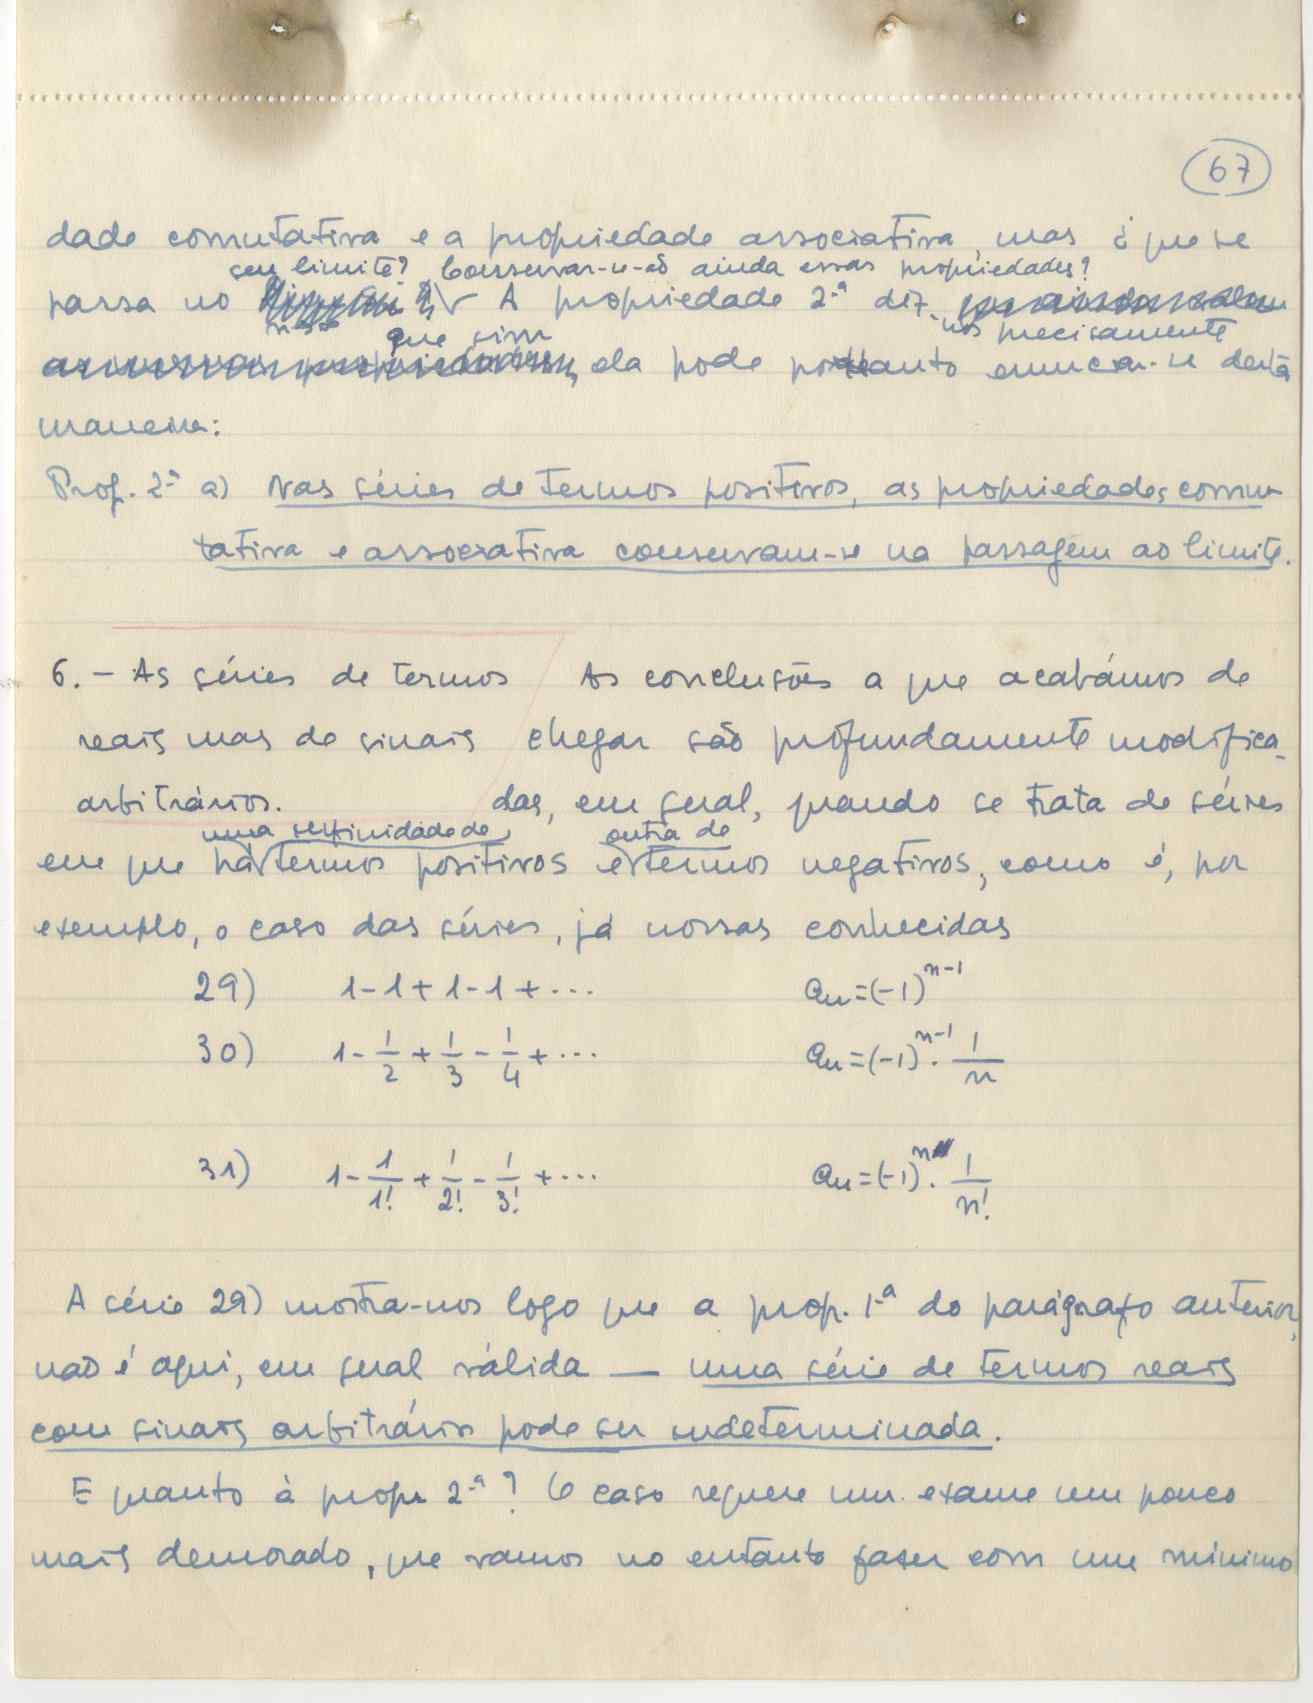 67
dade comutativa e a propriedade associativa, mas o que se
seu limite? Conservar-se-ão ainda essas propriedades?
passa no A propriedade 2.ª diz-
nos precisamente
que sim
, ela pode portanto enunciar-se desta
maneira:
Prop. 2.ª a) Nas séries de termos positivos, as propriedades comu-
tativa e associativa conservam-se na passagem ao limite.
6. - As séries de termos As conclusões a que acabámos de
reais mas de sinais chegar são profundamente modifica-
arbitrários. das, em geral, quando se trata de séries
uma infinidade de outra de
em que há termos positivos e termos negativos, como é, por
exemplo, o caso das séries, já nossas conhecidas
29) 1-1+1-1+... an=(-1)^{n-1}
30) 1-1/2+1/3-1/4+... an=(-1)^{n-1}.1/n
31) 1-1/1!+1/2!-1/3!+... an=(-1)^n.1/n!
A série 29) mostra-nos logo que a prop. 1.ª do parágrafo anterior,
não é aqui, em geral válida — uma série de termos reais
com sinais arbitrários pode ser indeterminada.
E quanto à prop. 2.ª? O caso requere um exame um pouco
mais demorado, que vamos no entanto fazer com um mínimo